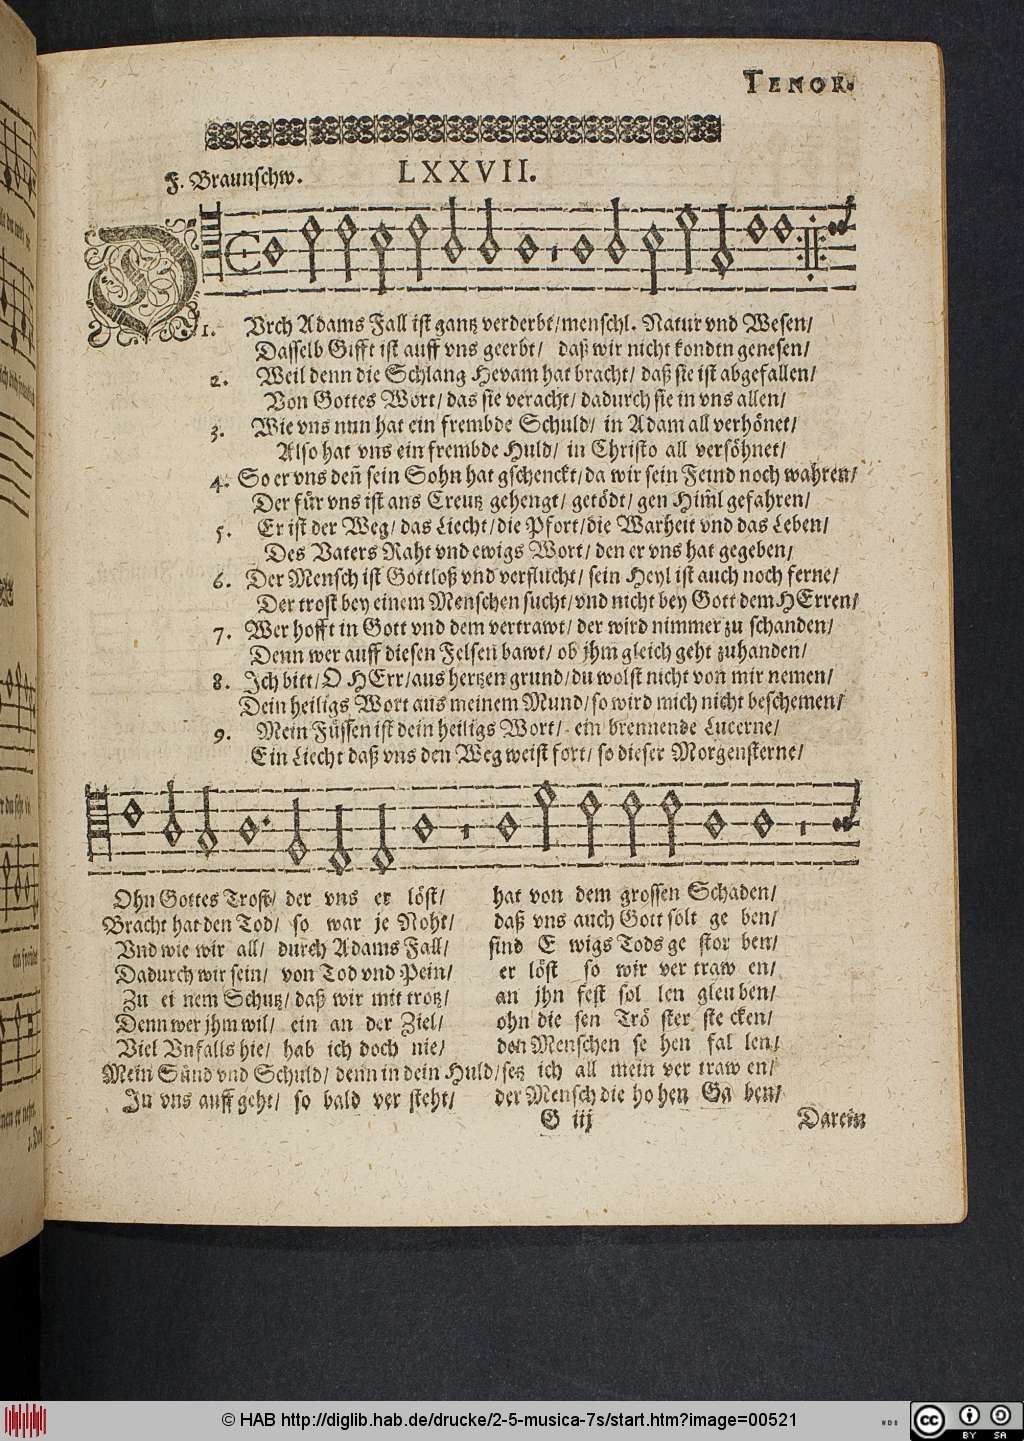 TENOR.
F. Braunschw.
LXXVII.
1. DVrch Adams Fall ist gantz verderbt/menschl. Natur vnd Wesen/
Dasselb Gifft ist auff vns geerbt/ daß wir nicht kondtn genesen/
2. Weil denn die Schlang Hevam hat bracht/ daß sie ist abgefallen/
Von Gottes Wort/ das sie veracht/ dadurch sie in vns allen/
3. Wie vns nun hat ein frembde Schuld/ in Adam all verhönet/
Also hat vns ein frembde Huld/ in Christo all versöhnet/
4. So er vns den̄ sein Sohn hat gschenckt/da wir sein Feind noch wahren/
Der für vns ist ans Creutz gehengt/ getödt/ gen Him̄l gefahren/
5. Er ist der Weg/ das Liecht/die Pfort/die Warheit vnd das Leben/
Des Vaters Raht vnd ewigs Wort/ den er vns hat gegeben/
6. Der Mensch ist Gottloß vnd verflucht/ sein Heyl ist auch noch ferne/
Der trost bey einem Menschen sucht/vnd nicht bey Gott dem HErren/
7. Wer hofft in Gott vnd dem vertrawt/ der wird nimmer zu schanden/
Denn wer auff diesen Felsen bawt/ ob jhm gleich geht zuhanden/
8. Ich bitt/O HErr/aus hertzen grund/du wolst nicht von mir nemen/
Dein heiligs Wort aus meinem Mund/so wird mich nicht beschemen/
9. Mein Füssen ist dein heiligs Wort/ ein brennende Lucerne/
Ein Liecht daß vns den Weg weist fort/ so dieser Morgensterne/
Ohn Gottes Trost/ der vns er löst/ hat von dem grossen Schaden/
Bracht hat den Tod/ so war je Noht/ daß vns auch Gott solt ge ben/
Vnd wie wir all/ durch Adams Fall/ sind E wigs Tods ge stor ben/
Dadurch wir sein/ von Tod vnd Pein/ er löst so wir ver traw en/
Zu ei nem Schutz/ daß wir mit trotz/ an jhn fest sol len gleu ben/
Denn wer jhm wil/ ein an der Ziel/ ohn die sen Trö ster ste cken/
Viel Vnfalls hie/ hab ich doch nie/ den Menschen se hen fal len/
Mein Sünd vnd Schuld/ denn in dein Huld/setz ich all mein ver traw en/
In vns auff geht/ so bald ver steht/ der Mensch die ho hen Ga ben/
G iij
Darein
© HAB http://diglib.hab.de/drucke/2-5-musica-7s/start.htm?image=00521
WDB
cc BY SA